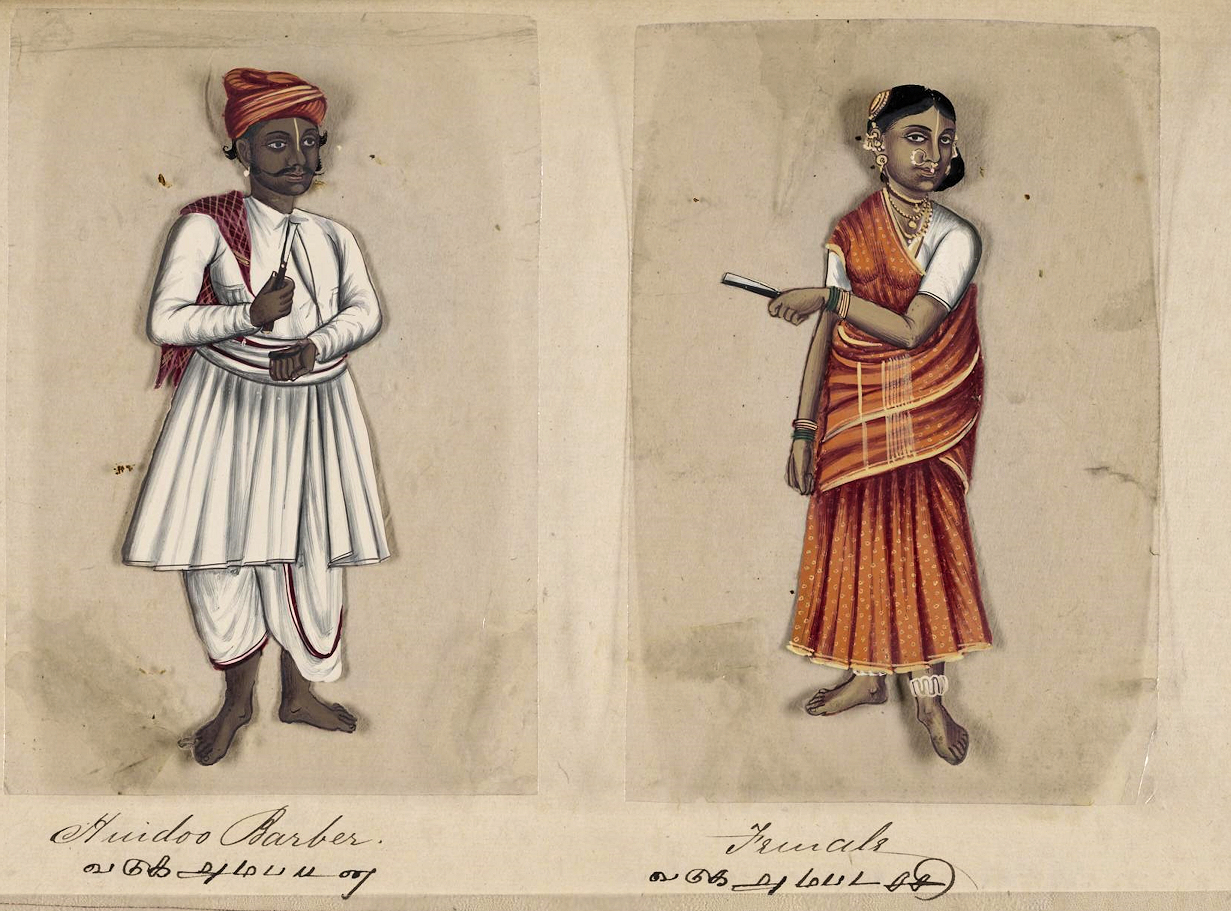 Hindoo Barber.
வடுக அம்பட்டன்
Female
வடுக அம்பட்டச்சி